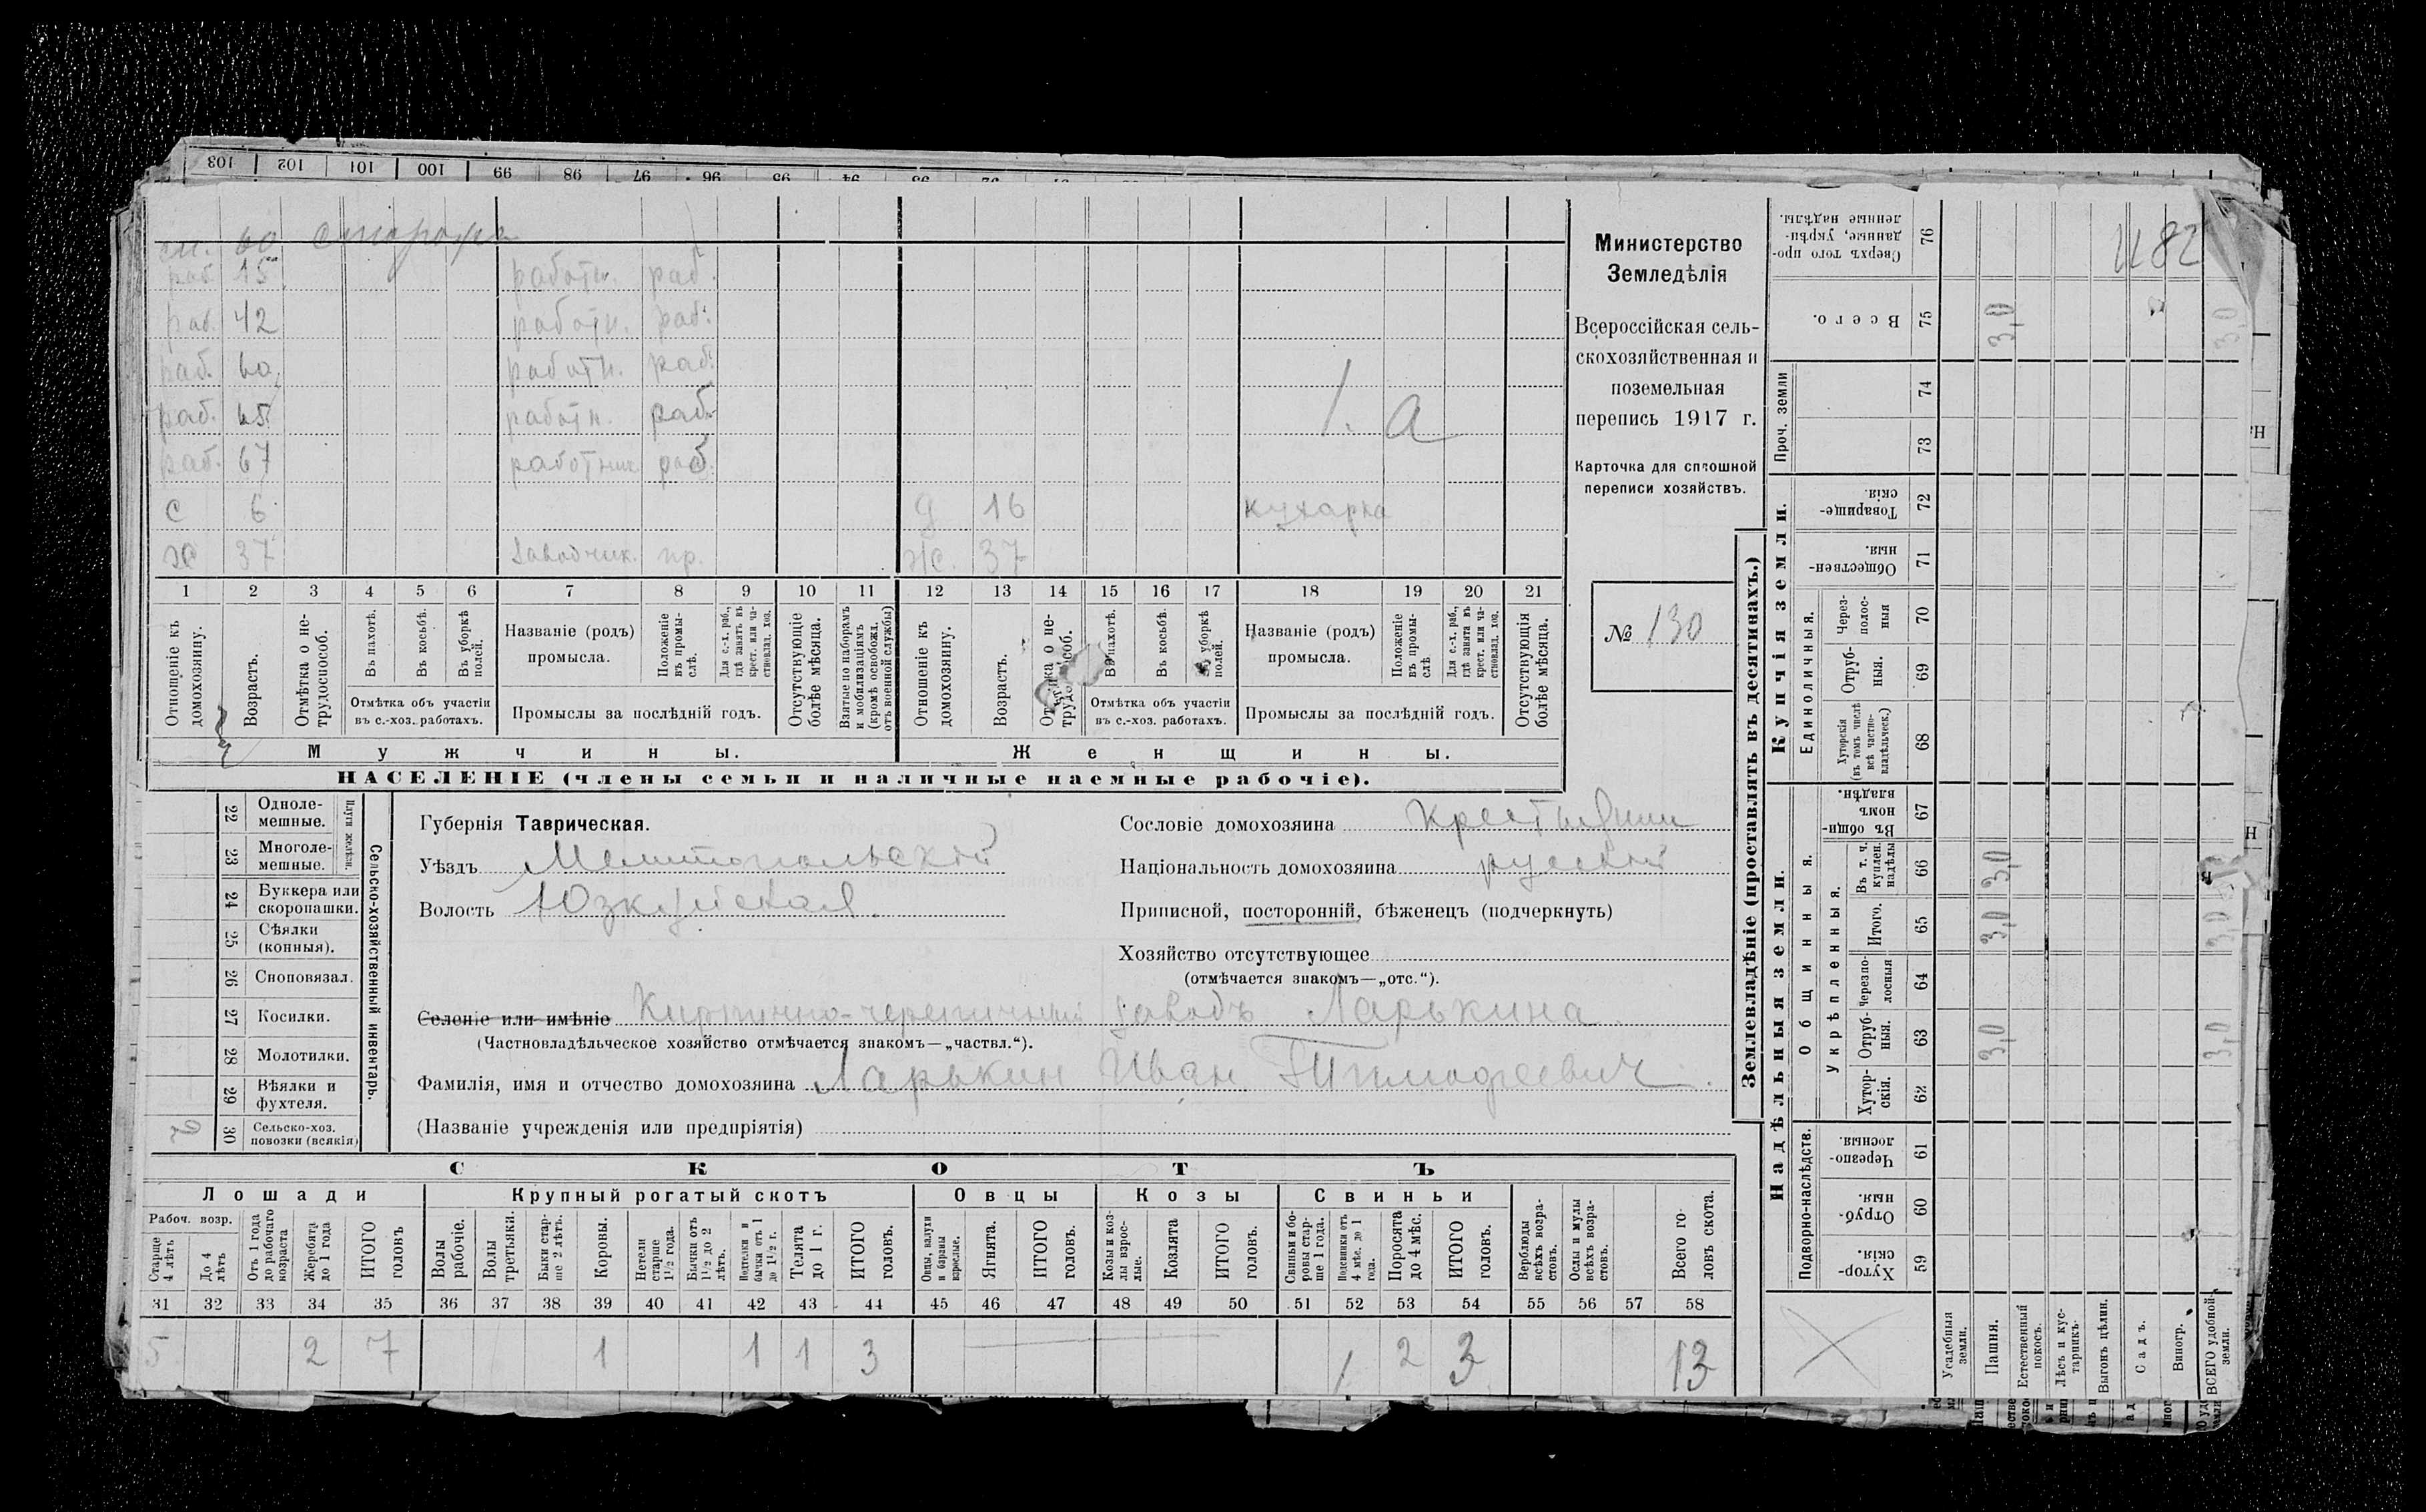 103 102 101 100 99 98 97 96 95 94 93 92
см. 60 сторожъ
раб. 15 работн. раб.
раб. 42 работн. раб.
раб. 60 работн. раб.
раб. 45 работн. раб.
1. а
раб. 67 работник раб.
с 6 д 16 кухарка
х 37 Заводчик. пр. ж. 37
1 2 3 4 5 6 7 8 9 10 11 12 13 14 15 16 17 18 19 20 21
Отношеніе къ домохозяину.
Возрастъ.
Отмѣтка о не-трудоспособ.
Въ пахотѣ.
Въ косьбѣ.
Въ уборкѣ полей.
Отмѣтка объ участіи въ с.-хоз. работахъ.
Названіе (родъ) промысла.
Положеніе въ промы-слѣ.
Для с.-х. раб., гдѣ занятъ въ крест. или ча-стновлад. хоз.
Промыслы за послѣдній годъ.
Отсутствующіе болѣе мѣсяца.
Взятые по наборамъ и мобилизаціямъ (кромѣ освобожд. отъ военной службы)
Отношеніе къ домохозяину.
Возрастъ.
Въ пахотѣ.
Въ косьбѣ.
уборкѣ полей.
Отмѣтка объ участіи въ с.-хоз. работахъ.
Названіе (родъ) промысла.
Положеніе въ промы-слѣ
Для с.-х. раб., гдѣ занята въ крест. или ча-стновлад. хоз.
Промыслы за послѣдній годъ.
Отсутствующія болѣе мѣсяца.
Мужчины. Женщины.
НАСЕЛЕНІЕ (члены семьи и наличные наемные рабочіе).
Министерство
Земледѣлія
Всероссійская сель-
скохозяйственная и
поземельная
перепись 1917 г.
Карточка для сплошной
переписи хозяйствъ.
№ 130
Сельско-хозяйственный инвентарь.
Плуги желѣзн.
22 Одноле-мешные.
23 Многоле-мешные.
24 Буккера или скоропашки.
25 Сѣялки (конныя).
26 Сноповязал.
27 Косилки.
28 Молотилки.
29 Вѣялки и фухтеля.
30 Сельско-хоз. повозки (всякія) 2
Губернія Таврическая.
Уѣздъ Мелитопольскій
Волость Юзкуйская.
Сословіе домохозяина крестьянин
Національность домохозяина русскій
Приписной, посторонній, бѣженецъ (подчеркнуть)
Хозяйство отсутствующее
(отмѣчается знакомъ—„отс.“).
Селеніе или имѣніе Кирпично-черепичный заводъ Ларькина.
(Частновладѣльческое хозяйство отмѣчается знакомъ—„частвл.“).
Фамилія, имя и отчество домохозяина Ларькин Иван Тимофеевич.
(Названіе учрежденія или предпріятія)
СКОТЪ
Лошади Крупный рогатый скотъ Овцы Козы Свиньи
Рабоч. возр.
Старше 4 лѣтъ
До 4 лѣтъ
Отъ 1 года до рабочаго возраста
Жеребята до 1 года
ИТОГО головъ
Волы рабочіе.
Волы третьяки.
Быки стар-ше 2 лѣтъ.
Коровы.
Нетели старше 1 1/2 года.
Бычки отъ 1 1/2 до 2 лѣтъ.
Подтелки и бычки отъ 1 до 1 1/2 г.
Телята до 1 г.
ИТОГО головъ.
Овцы, валухи и бараны взрослые.
Ягнята.
ИТОГО головъ.
Козы и коз-лы взрос-лые.
Козлята
ИТОГО головъ.
Свиньи и бо-ровы стар-ше 1 года.
Подсвинки отъ 4 мѣс. до 1 года.
Поросята до 4 мѣс.
ИТОГО головъ.
Верблюды всѣхъ возра-стовъ.
Ослы и мулы всѣхъ возра-стовъ.
Всего го-ловъ скота.
31 32 33 34 35 36 37 38 39 40 41 42 43 44 45 46 47 48 49 50 51 52 53 54 55 56 57 58
5 2 7 1 1 1 3 1 2 3 13
Землевладѣніе (проставлять въ десятинахъ.)
Надѣльныя земли. Купчія земли. Проч. земли
Подворно-наслѣдств. Общинныя. Укрѣпленныя. Единоличныя.
76 Сверхъ того про-данные, укрѣп-ленные надѣлы. 1182
75 Всего. 3,0 3,0
74
73
72 Товарище-скія.
71 Обществен-ныя.
70 Через-полос-ныя
69 Отруб-ныя.
68 Хуторскія (въ томъ числѣ всѣ частно-владѣльческ.)
67 Въ общин-номъ владѣн.
66 Въ т. ч. куплен. надѣлы 3,0
65 Итого. 3,0 3,0
64 Черезпо-лосныя
63 Отруб-ныя. 3,0 3,0
62 Хутор-скія.
61 Черезпо-лосныя.
60 Отруб-ныя.
59 Хутор-скія.
Усадебныя земли.
Пашня.
Естественный покосъ.
Лѣсъ и кус-тарникъ.
Выгонъ цѣлин.
Садъ.
Виногр.
ВСЕГО удобной земли.